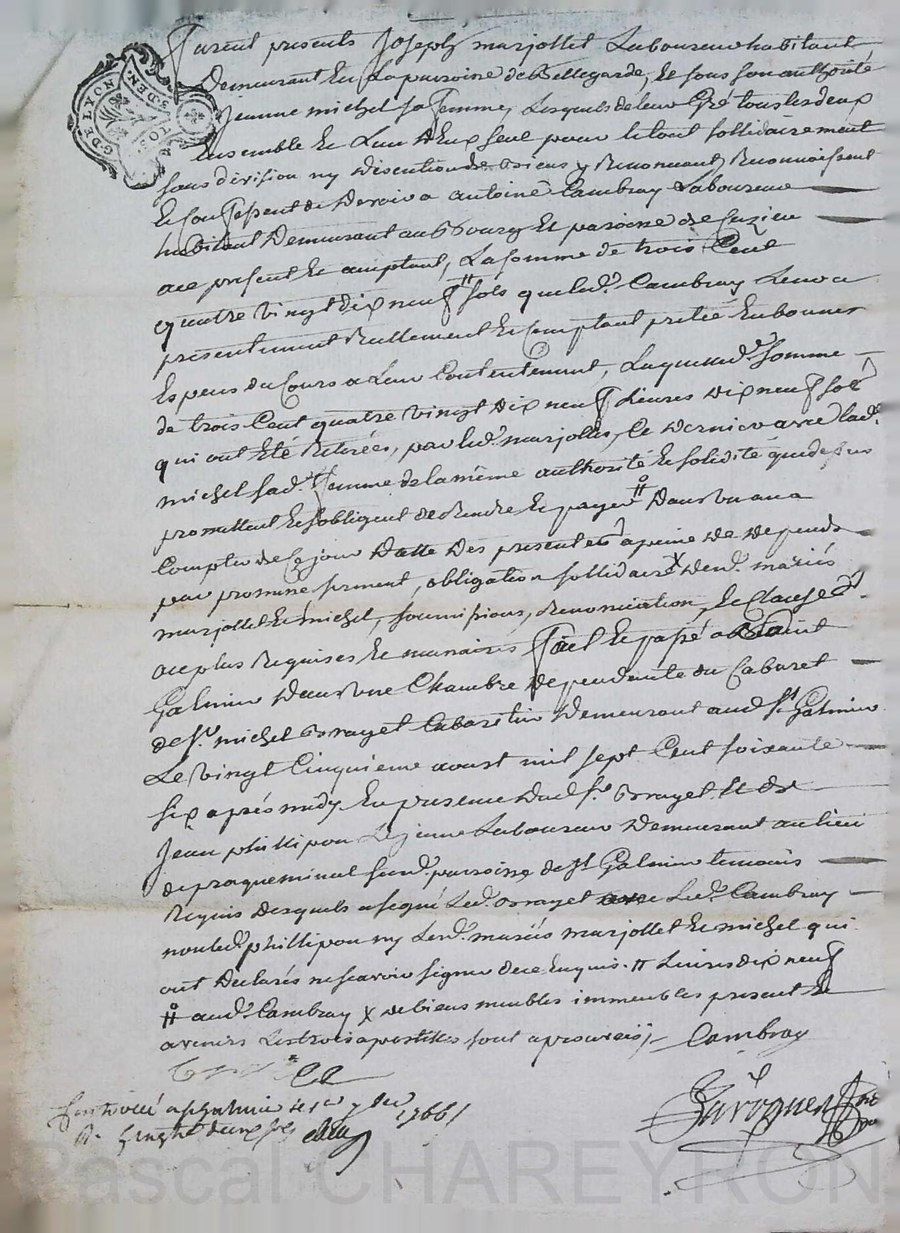 Furent presents Joseph marjollet Laboureur habitant
Demeurant En La paroisse de Bellegarde, Et sous son authorité
G. DE LYON
3. DEN.
Jeanne michel sa femme, Lesquels de leur Gré tous les deux
Ensemble Et L'un D'Eux seul pour le tout sollidairement
sans division ny Discution de biens y Renoncent, Reconnoissent
Et Confessent de Devoir a antoine Cambray Laboureur
habitant Demeurant au Bourg Et paroisse de Cuzieu
ace present Et acceptant, La somme de trois Cent
quatre vingt dix neuf # sols que led. Cambray Leur a
presentement Reellement Et Comptant pretée En bonnes
Especes du Cours a Leur Contentement, Laquelle de. somme
de trois Cent quatre vingt Dix neuf Livres Dix neuf sols
qui ont Eté Retirées, par led. marjollet, Ce Dernier avec lad.
michel sad. femme de la même authorité Et solidité que dessus
promettent Et s'obligent de Rendre Et payer # Dans un an a
Compter de Ce jour Datte Des presentes a peine de Depends
par promesse, serment, obligation sollidaire X Desd. mariés
marjollet Et michel, soumissions, Renonciation, Et Clauses
au plus Requises Et necessaires fait Et passé a Saint
Galmier Dans une Chambre Dependante du Cabaret
de sr. michel Brayet Cabaretier Demeurant aud. St. Galmier
Le vingt Cinquieme aoust mil sept Cent soixante
six après midy En presence Dud. sr. Brayet Et de
Jean phillipon Le jeune Laboureur Demeurant au lieu
de praqueminel susd. paroisse de St Galmier temoins
Requis Desquels a signé Led. Brayet avec Led. Cambray
non led. phillipon ny Lesd. mariés marjollet Et michel qui
ont Declarés ne scavoir signer de ce Enquis. # Livres dix neuf
# aud. Cambray X de biens meubles immeubles present Et
avenirs Les trois apostilles sont aprouvés, Cambray
Controllé a St Galmier le 1er 7bre 1766
R.
Pascal CHAREYRON